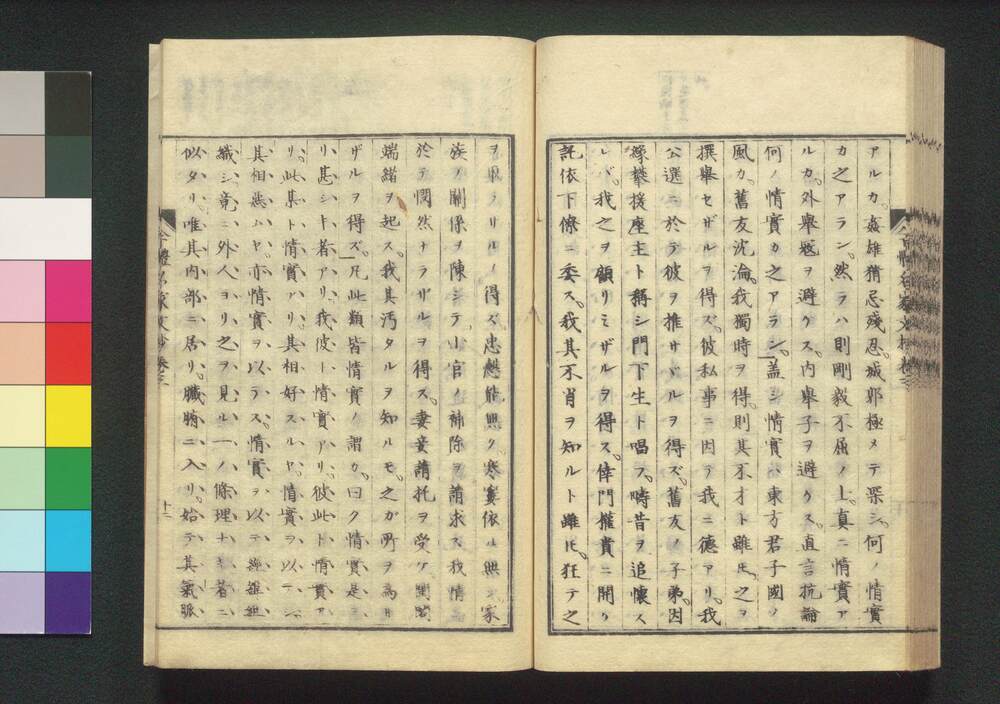 アルカ。姦雄猜忌殘忍。城郭極メテ深シ。何ノ情實
カ之アラン。然ラハ則剛毅不屈ノ上。真ニ情實ア
ルカ。外舉怨ヲ避ケス。内舉子ヲ避ケス。直言抗論
何ノ情實カ之アラン。蓋シ情實ハ東方君子國ノ
風カ。舊友沈淪。我獨時ヲ得。則其不才ト雖氏。之ヲ
撰舉セザルヲ得ズ。彼私事ニ因テ我ニ德アリ。我
公選ニ於テ彼ヲ推サヾルヲ得ズ。舊友ノ子弟。因
縁攀援座主ト稱シ門下生ト唱フ。疇昔ヲ追懷ス
レバ。我之ヲ顧リミザルヲ得ス。倖門權貴ニ開ク
託依下僚ニ委ス。我其不肖ヲ知ルト雖氏。狂テ之
ヲ 得ズ。忠懇 寒寠依 家
族ノ關係ヲ陳シテ。小官 補除ヲ請求ス我情
於テ憫然ナラザルヲ得ス。妻妾請托ヲ受ケ閨閤
端緒ヲ起ス。我其汚タルヲ知ルモ。之ガ所ヲ為サ
ザルヲ得ズ。凡此類皆情實ノ謂カ。曰ク情實是ヨ
リ甚シキ者アリ。我彼ト情實アリ。彼此ト情實ア
リ。此某ト情實アリ。其相好スルヤ。情實ヲ以テシ
其相惡ムヤ。亦情實ヲ以テス。情實ヲ以テ經維組
織シ。竟ニ外人ヨリ之ヲ見ル一ハ條理ナキ者ニ
似タリ。唯其内部ニ居リ。臟腑ニ入リ。始テ其氣脈
十二